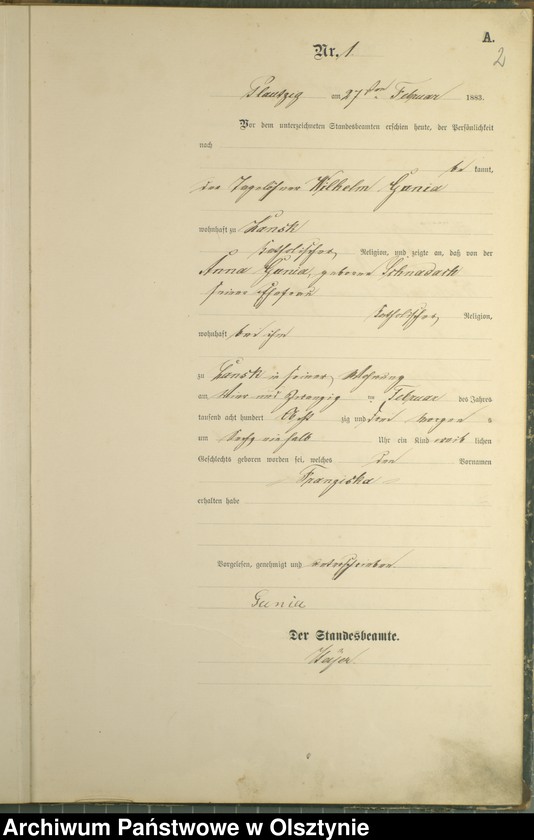 A.
2
Nr. 1.
Plautzig am 27ten Februar 1883.
Vor dem unterzeichneten Standesbeamten erschien heute, der Persönlichkeit
nach
be kannt,
der Tagelöhner Wilhelm Gania
wohnhaft zu Lansk
katholischer Religion, und zeigte an, daß von der
Anna Gania, geborene
seiner Ehefrau
katholischer Religion,
wohnhaft bei ihm
zu Lansk in seiner Wohnung
am vier und zwanzig ten Februar des Jahres
tausend acht hundert acht zig und drei Morgens
um sechs ein halb Uhr ein Kind weib lichen
Geschlechts geboren worden sei, welches den Vornamen
Franziska
erhalten habe
Vorgelesen, genehmigt und unterschrieben
Gania
Der Standesbeamte.
Archiwum Państwowe w Olsztynie